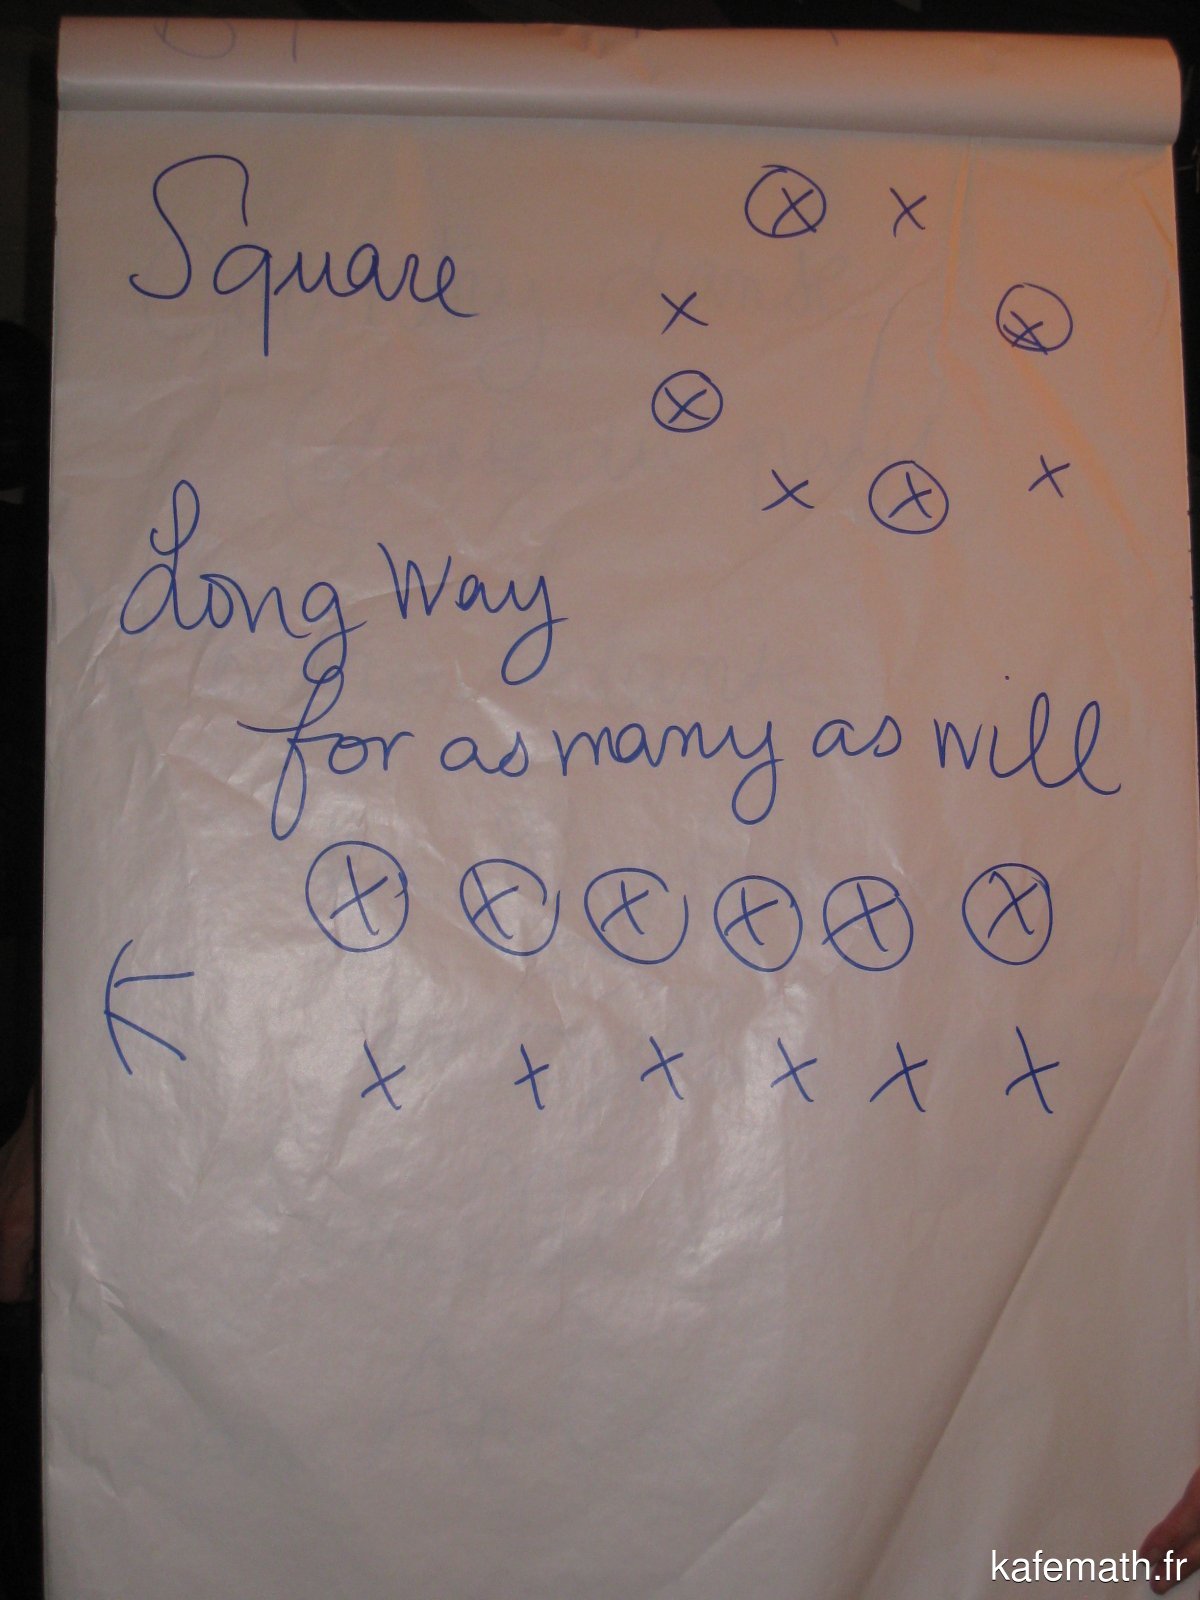 Square
Long Way
for as many as will
kafemath.fr